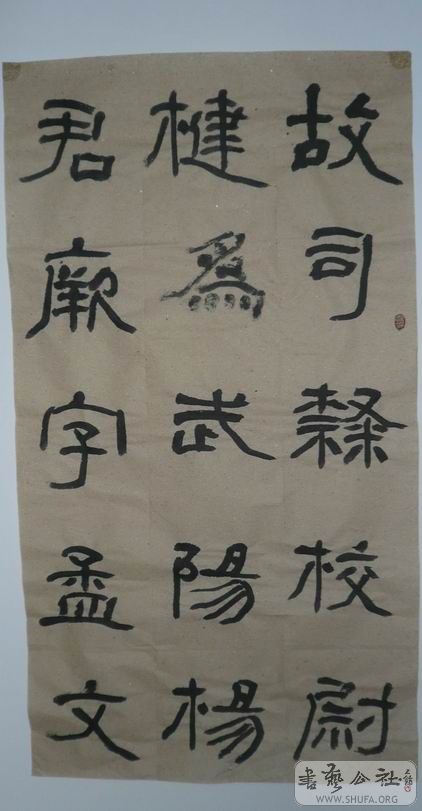 故司隸校尉
楗為武陽楊
君厥字孟文
書藝公社
WWW.SHUFA.ORG